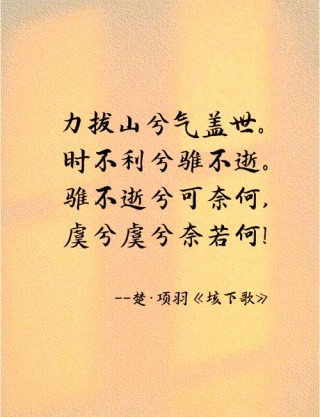 力拔山兮气盖世。
时不利兮骓不逝。
骓不逝兮可奈何,
虞兮虞兮奈若何!
--楚·项羽《垓下歌》